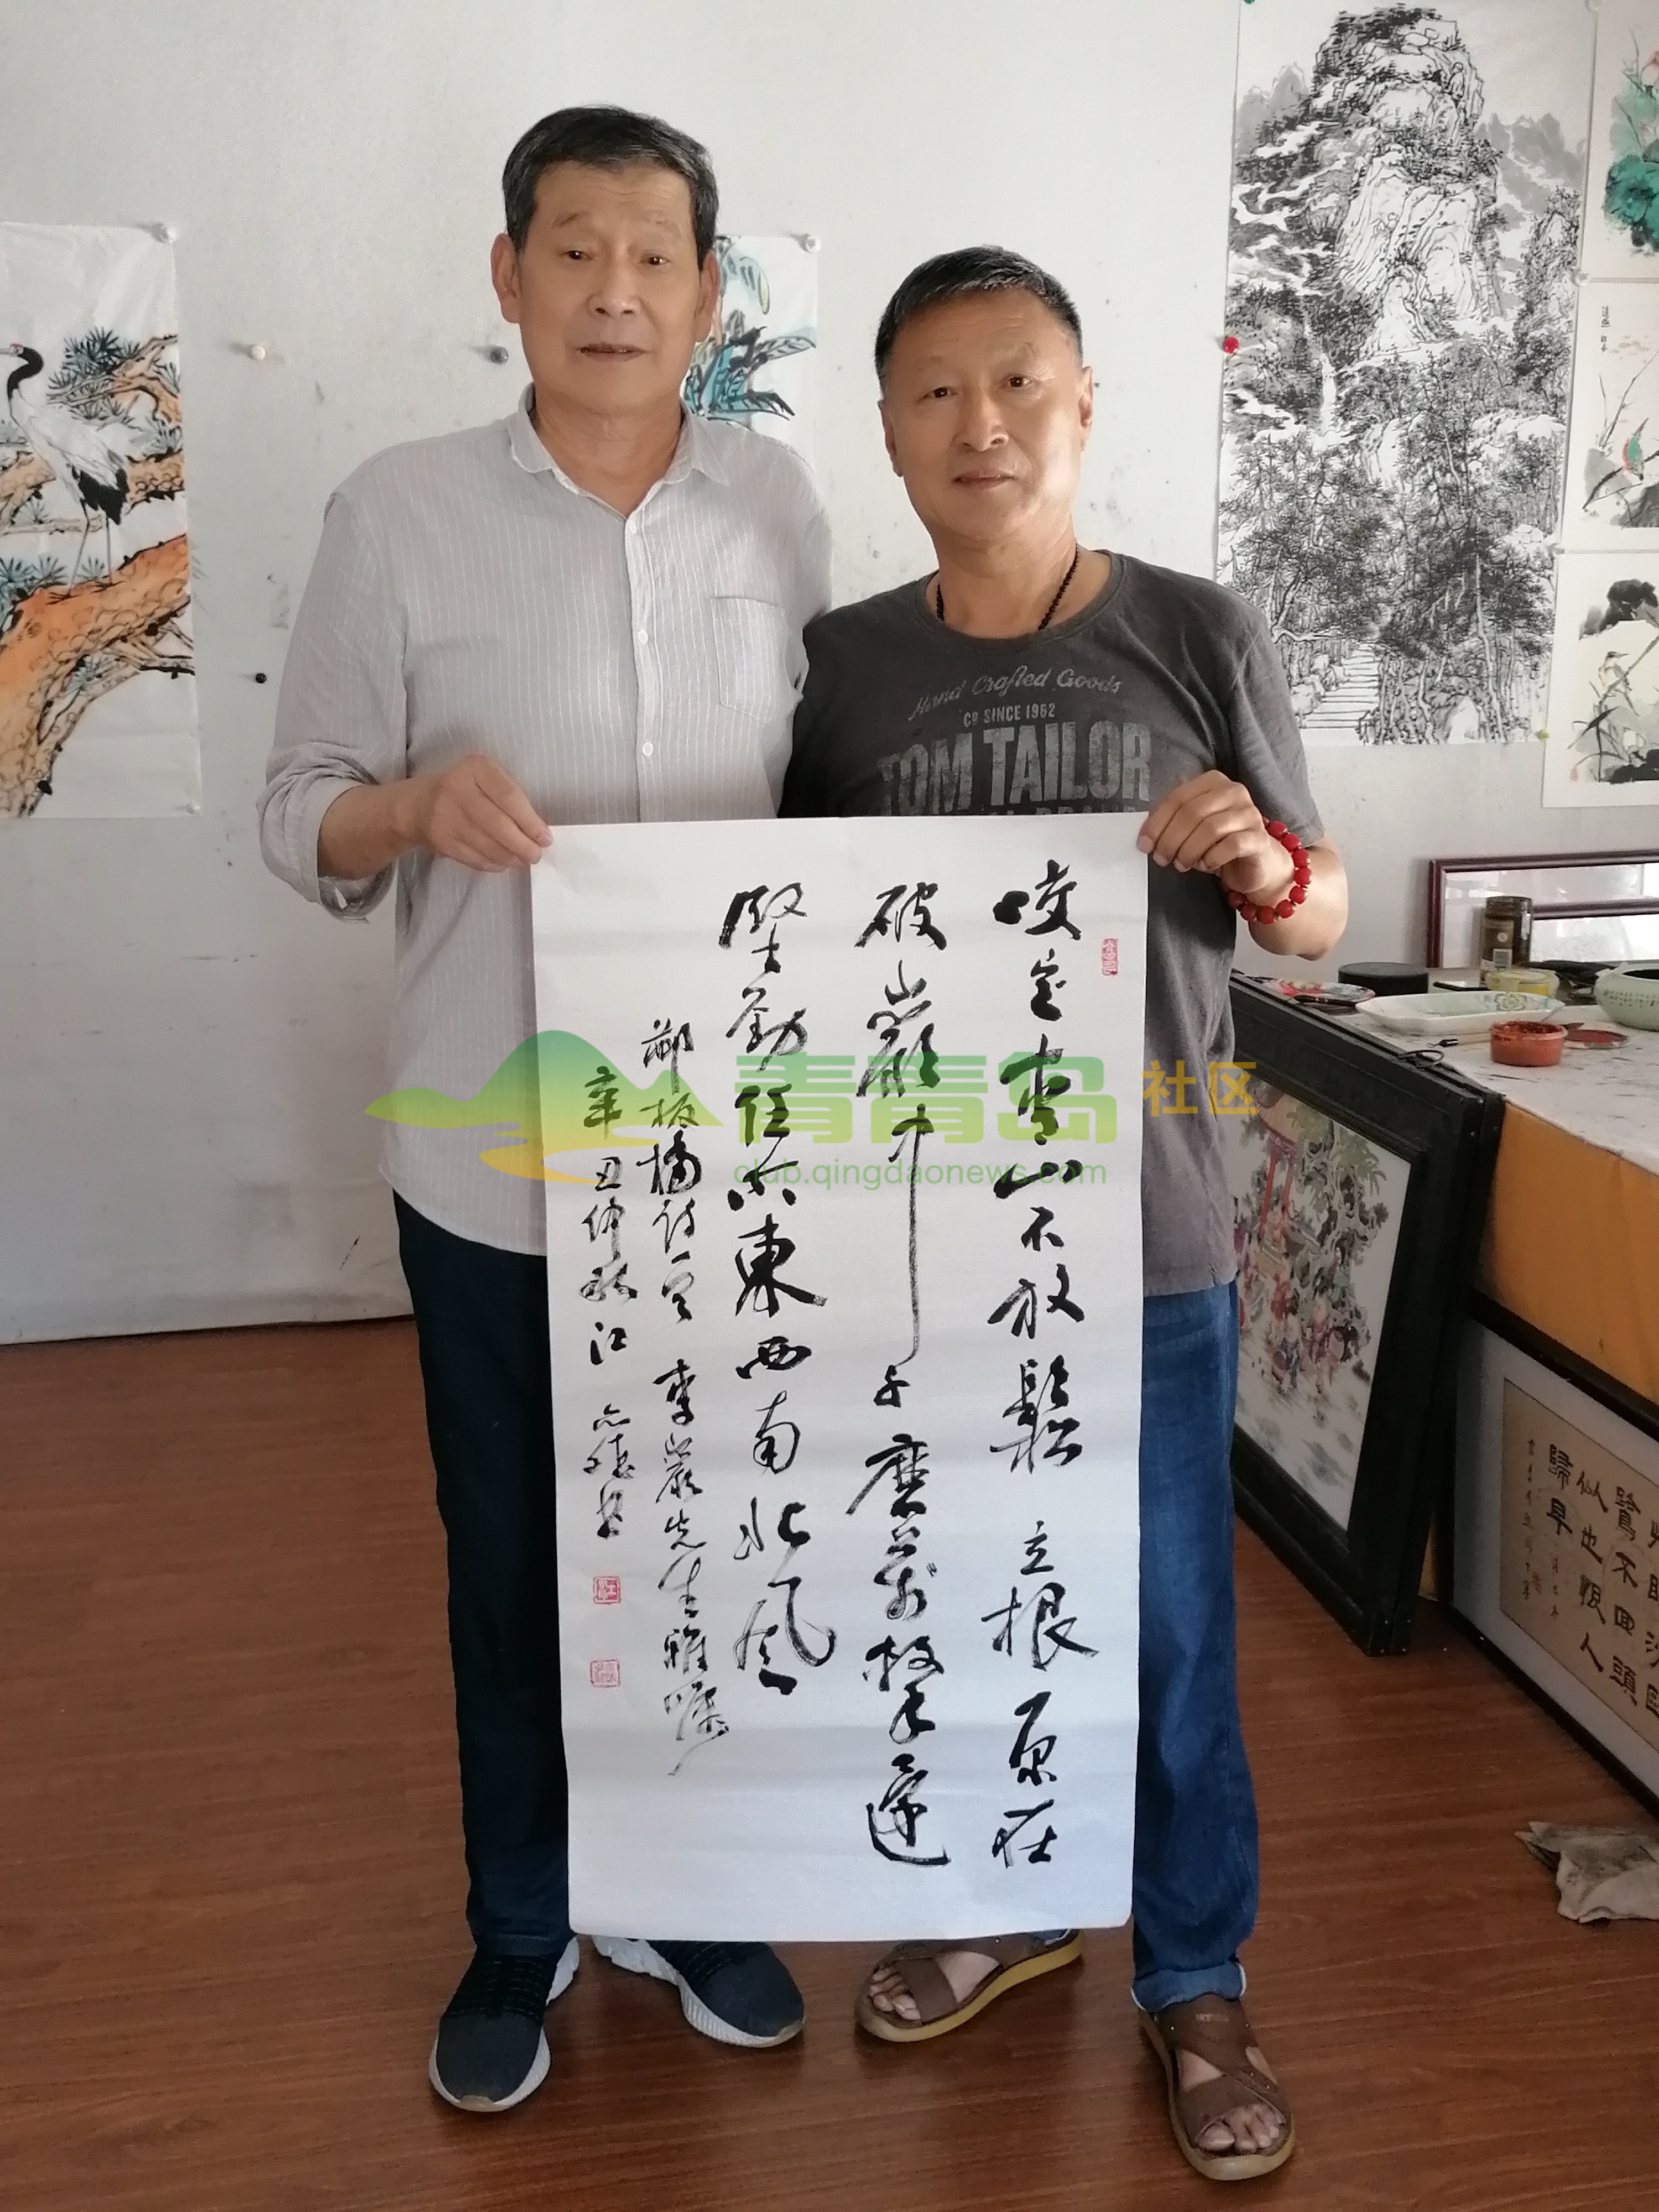 Hand Crafted Goods
Co SINCE 1962
TOM TAILOR
咬定青山不放鬆立根原在
破巖中千磨萬擊還
堅勁任尔東西南北風
鄭板橋诗一首 李巖先生雅嘱
辛丑仲秋江
青青岛 社区
club.qingdaonews.com
鷺不回頭
似也恨人
歸早